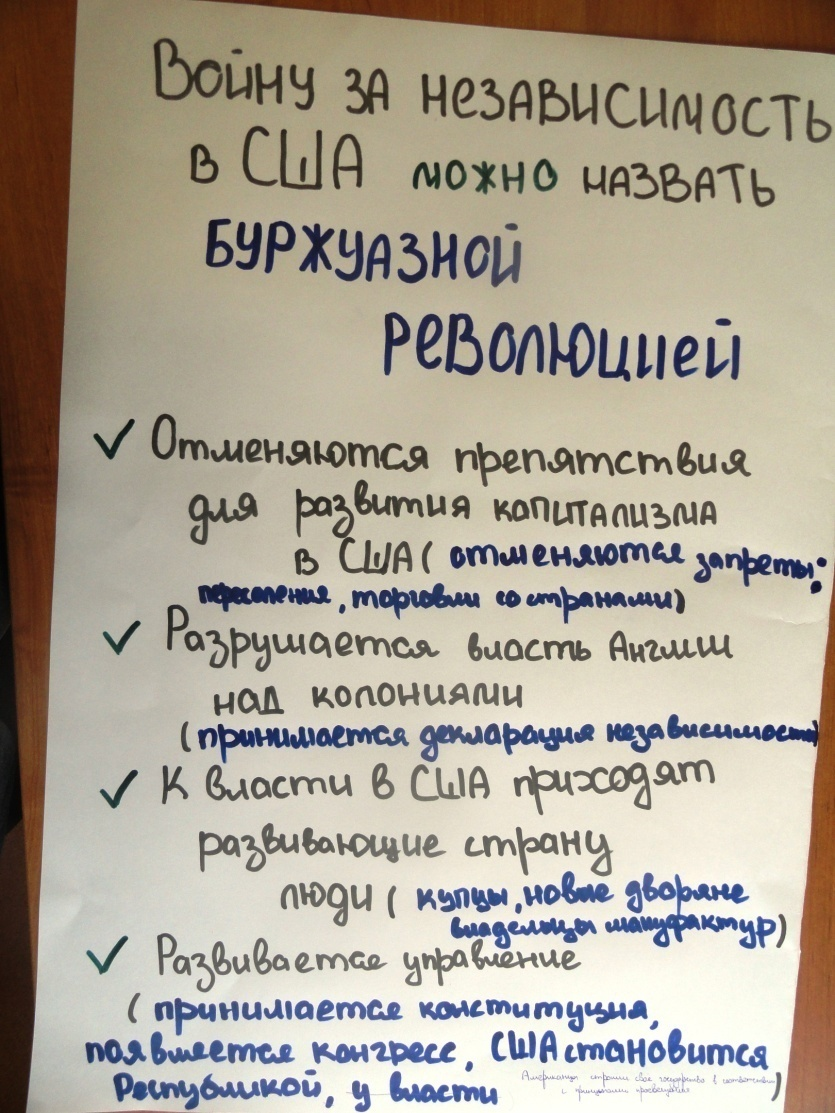 Войну за независимость
в США можно назвать
БУРЖУАЗНОЙ
РЕВОЛЮЦИЕЙ
✓ Отменяются препятствия
для развития капитализма
в США ( отменяются запреты:
переселения, торговли со странами)
✓ Разрушается власть Англии
над колониями
(принимается декларация независимости)
✓ К власти в США приходят
развивающие страну
люди ( купцы, новые дворяне
владельцы мануфактур)
✓ Развивается управление
( принимается конституция,
появляется конгресс, США становится
Республикой, у власти
Американцы строили свое государство в соответствии)
с принципами просвещения